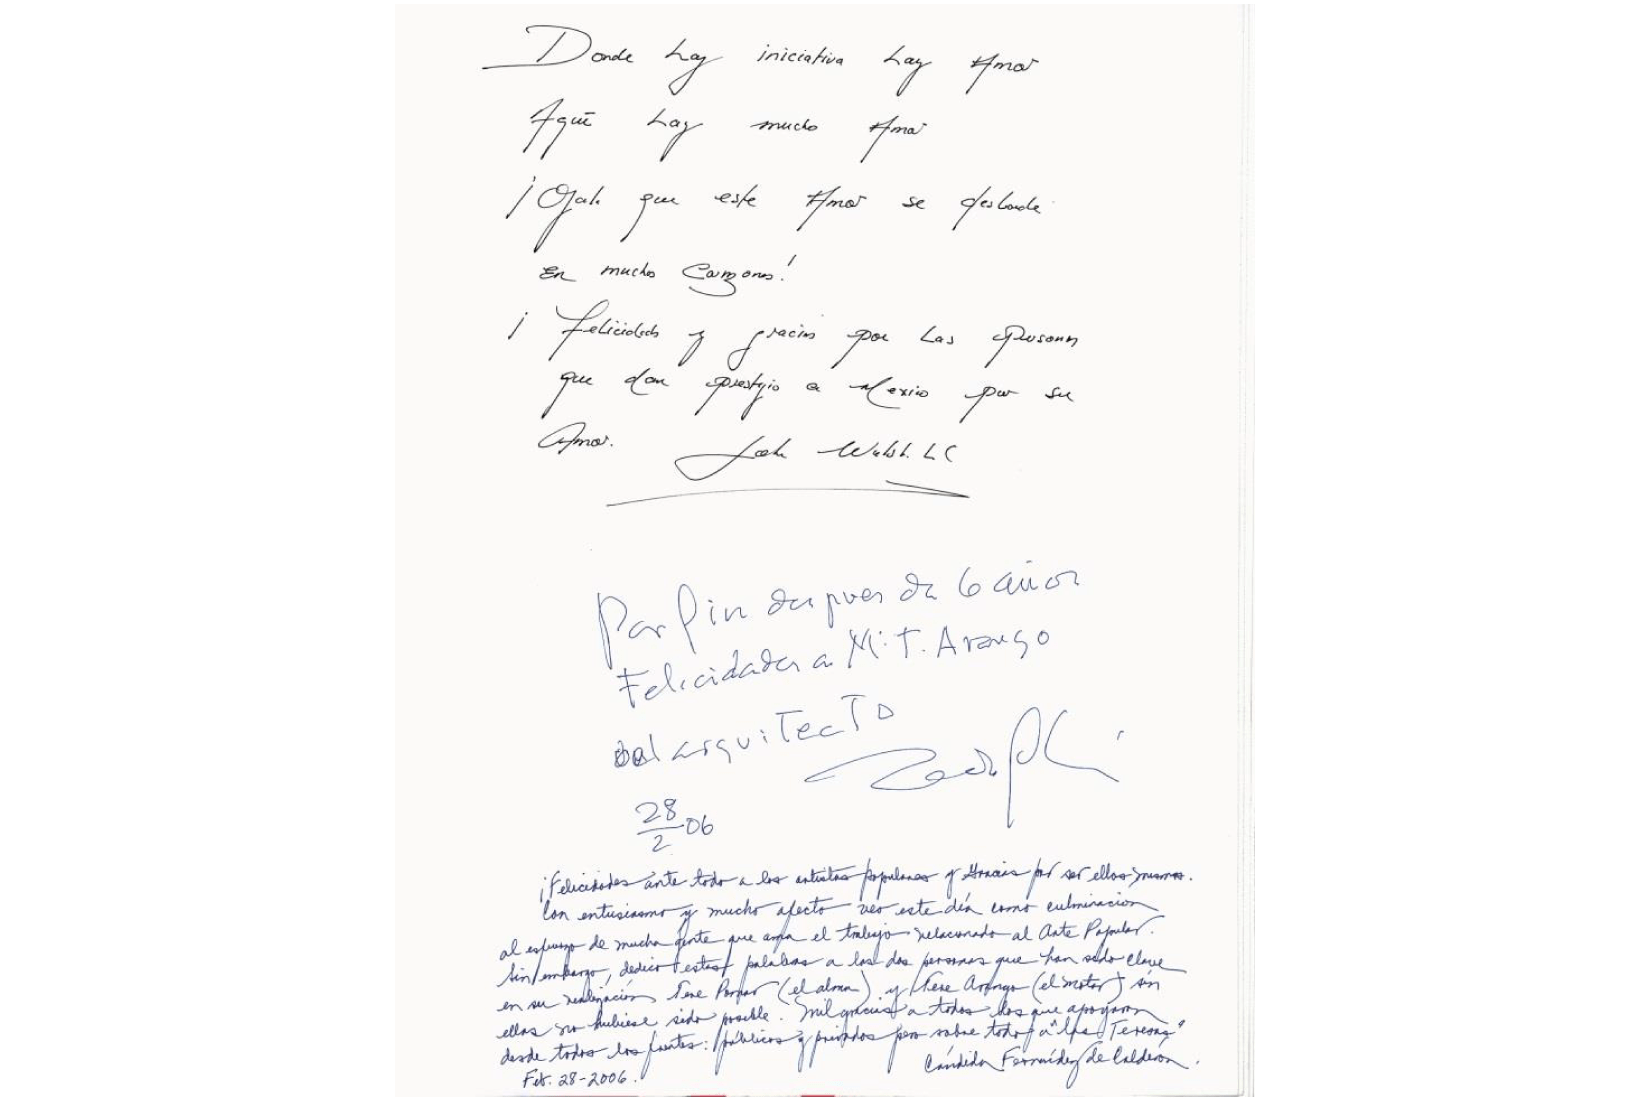 Donde hay iniciativa hay Amor
Aquí hay mucho Amor
¡Ojalá que este Amor se desborde
en muchos Corazones!
¡Felicidades y gracias por las personas
que dan prestigio a Mexico por su
Amor. John Walsh. LC
Por fin despues de 6 años
Felicidades a M.T. Arango
al arquitecto
28/2 06
¡Felicidades ante todo a los artistas populares y Gracias por ser ellos mismos.
Con entusiasmo y mucho afecto veo este día como culminacion
al esfuerzo de mucha gente que ama el trabajo relacionado al Arte Popular.
Sin embargo, dedico estas palabras a las dos personas que han sido clave
en su realización Tere Pomar (el alma) y Tere Arango (el motor) sin
ellas no hubiese sido posible. Mil gracias a todos los que apoyaron
desde todos los fuentes: públicos y privados pero sobre todo a "las Teresas"
Cándida Fernández de Calderón.
Feb. 28-2006.